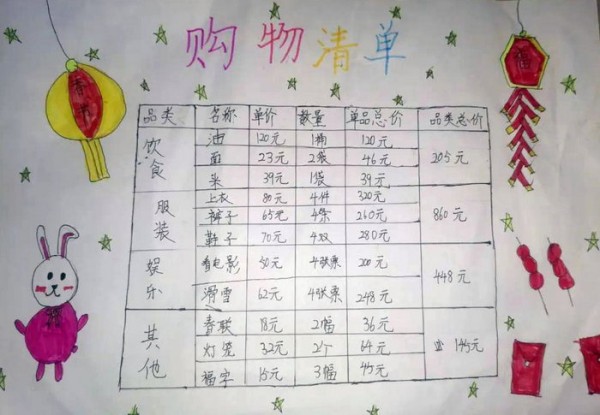 购物清单
品类 名称 单价 数量 单品总价 品类总价
饮食 油 120元 1桶 120元 205元
面 23元 2袋 46元
米 39元 1袋 39元
服装 上衣 80元 4件 320元 860元
裤子 65元 4条 260元
鞋子 70元 4双 280元
娱乐 看电影 50元 4张票 200元 448元
滑雪 62元 4张票 248元
其他 春联 18元 2幅 36元 145元
灯笼 32元 2个 64元
福字 15元 3幅 45元